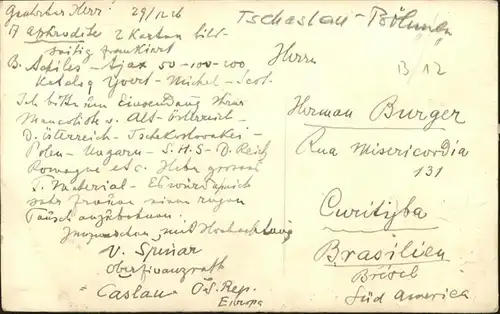 Geehrter Herr! 29/12 26
17 Aphrodite 2 Karton bild-
seitig frankiert
B. Achiles - Ajax 50-100-200
Katalog Yvert-Michel-Scot.
Ich bitte um Einsendung Ihrer
Mancoliste v. Alt-Österreich-
D. Österreich-Tschekoslovakei-
Polen-Ungarn-S.H.S-D. Reich
Romagne etc. Habe grosses
T. Material - Es würde mich
sehr freuen einen regen
Tausch anzubahnen.
Inzwischen mit Hochachtung
V. Spinar
Oberfinanzrath
Caslau Čs. Rep.
Europa
Tschaslau-Böhmen
Herrn
B/12
Herman Burger
Rua Misericordia
131
Curityba
Brasilien
Brésil
Süd America